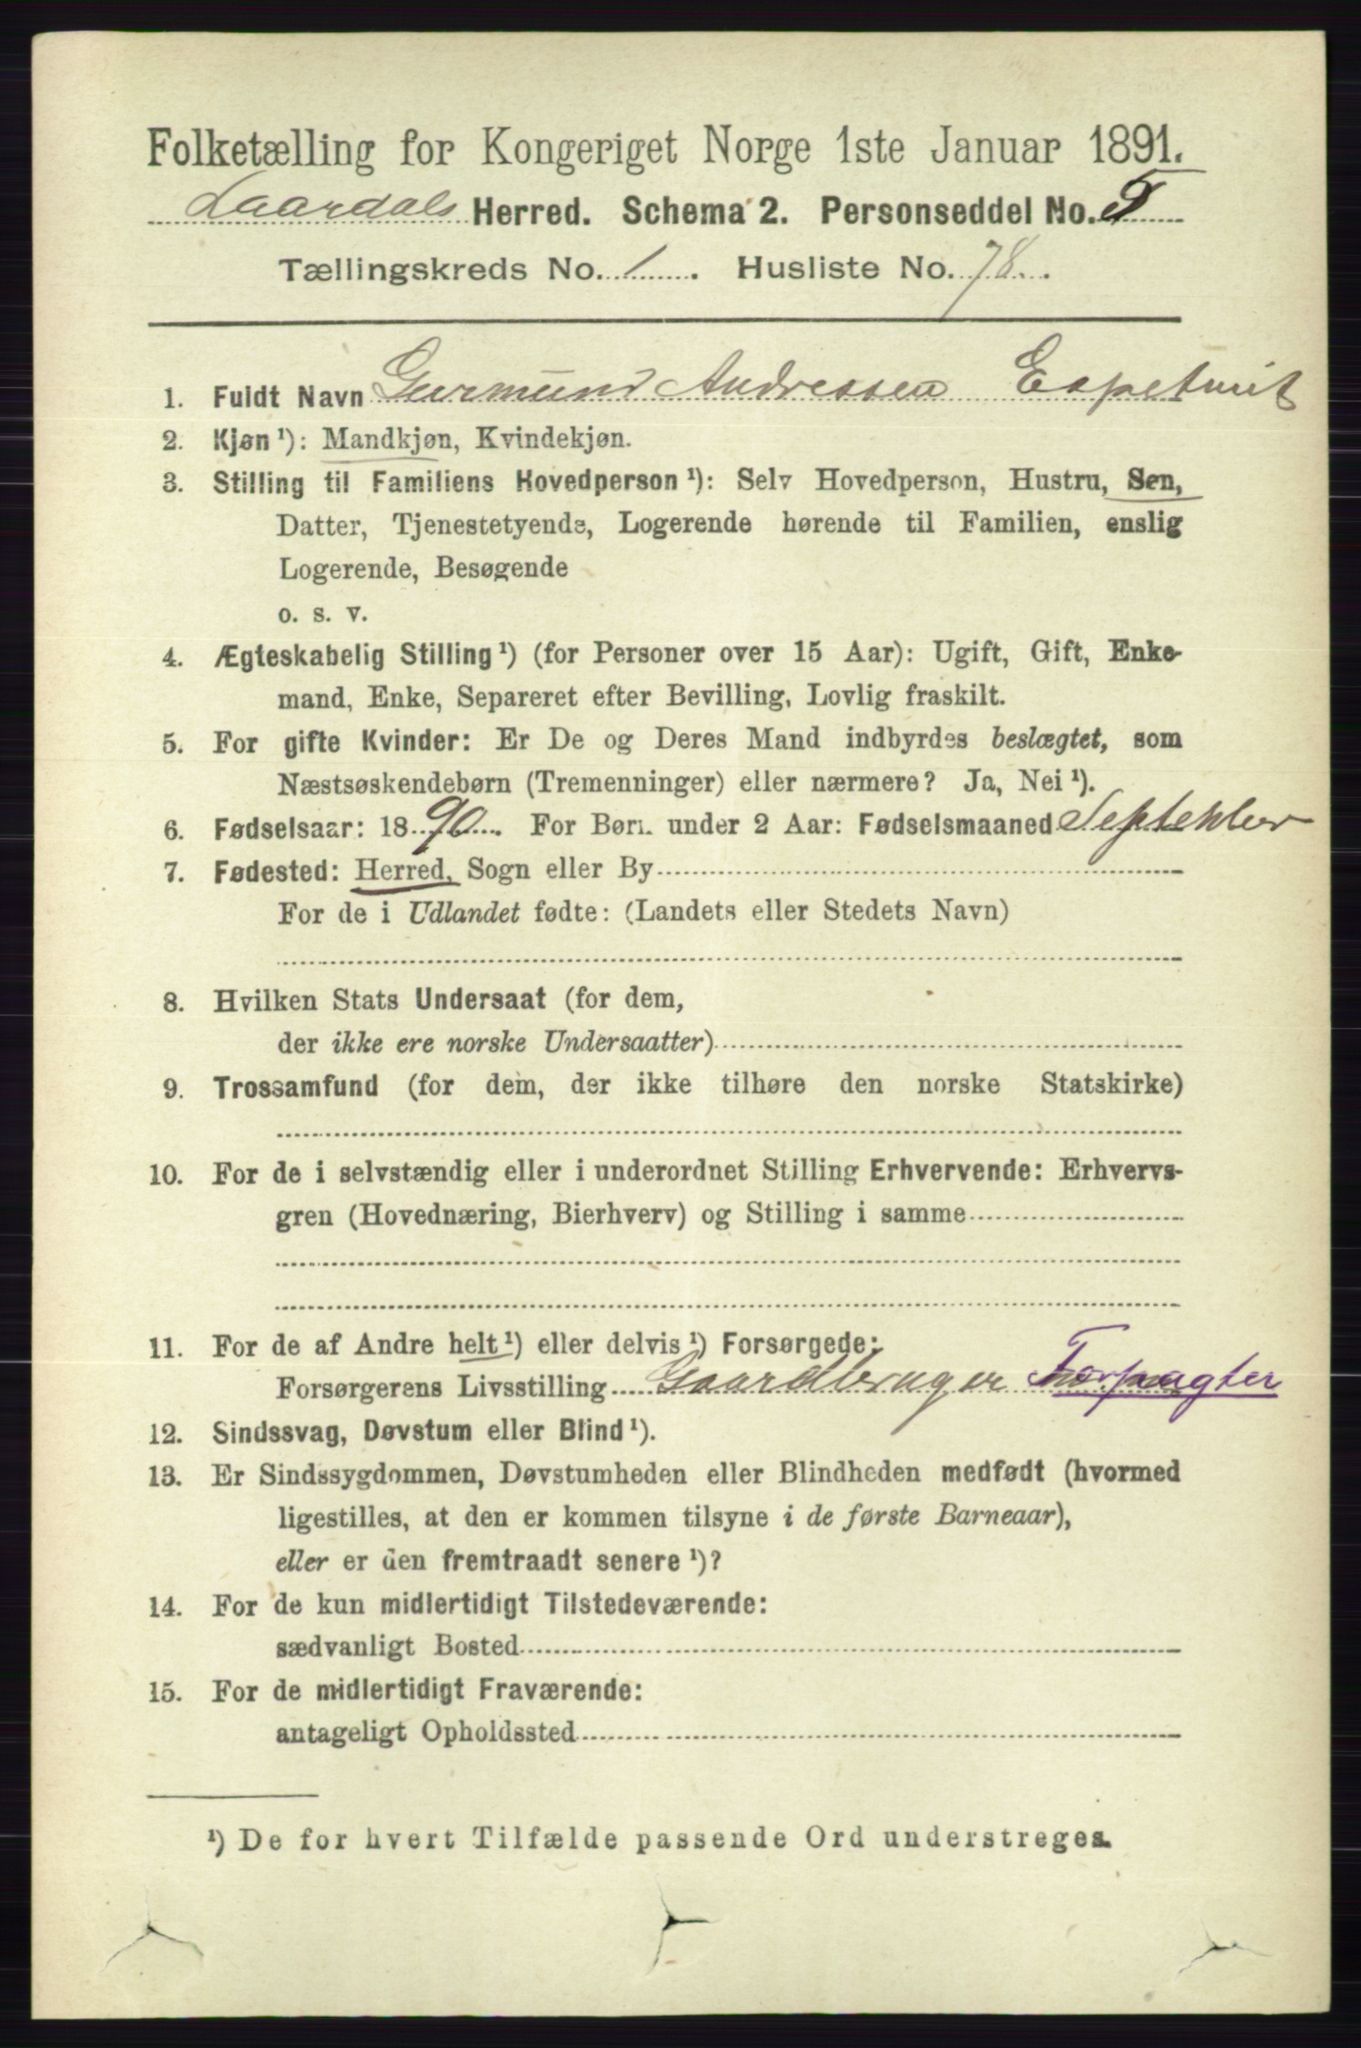 Folketælling for Kongeriget Norge 1ste Januar 1891.
Laardals Herred. Schema 2. Personseddel No. 5
Tællingskreds No. 1. Husliste No. 78.
1. Fuldt Navn Andressen
2. Kjøn ¹): Mandkjøn, Kvindekjøn.
3. Stilling til Familiens Hovedperson ¹): Selv Hovedperson, Hustru, Søn,
Datter, Tjenestetyende, Logerende hørende til Familien, enslig
Logerende, Besøgende
o. s. v.
4. Ægteskabelig Stilling ¹) (for Personer over 15 Aar): Ugift, Gift, Enke-
mand, Enke, Separeret efter Bevilling, Lovlig fraskilt.
5. For gifte Kvinder: Er De og Deres Mand indbyrdes beslægtet, som
Næstsøskendebørn (Tremenninger) eller nærmere? Ja, Nei ¹).
6. Fødselsaar: 1890. For Børn under 2 Aar: Fødselsmaaned September
7. Fødested: Herred, Sogn eller By
For de i Udlandet fødte: (Landets eller Stedets Navn)
8. Hvilken Stats Undersaat (for dem,
der ikke ere norske Undersaatter)
9. Trossamfund (for dem, der ikke tilhøre den norske Statskirke)
10. For de i selvstændig eller i underordnet Stilling Erhvervende: Erhvervs-
gren (Hovednæring, Bierhverv) og Stilling i samme
11. For de af Andre helt ¹) eller delvis ¹) Forsørgede:
Forsørgerens Livsstilling Gaardbruger Forpagter
12. Sindssvag, Døvstum eller Blind ¹).
13. Er Sindssygdommen, Døvstumheden eller Blindheden medfødt (hvormed
ligestilles, at den er kommen tilsyne i de første Barneaar),
eller er den fremtraadt senere ¹)?
14. For de kun midlertidigt Tilstedeværende:
sædvanligt Bosted
15. For de midlertidigt Fraværende:
antageligt Opholdssted
¹) De for hvert Tilfælde passende Ord understreges.